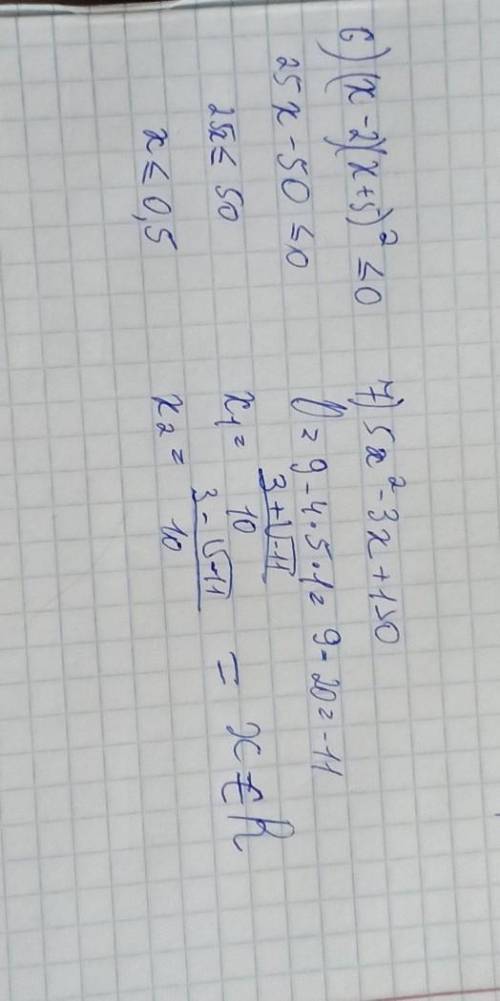 6) (x-2)(x+5)² ≤0
25x-50 ≤0
25x≤ 50
x ≤ 0,5
7) 5x²-3x+1>0
D= 9-4·5·1= 9-20=-11
x₁= 3+√-11 / 10
x₂= 3-√-11 / 10 = x ∈ R